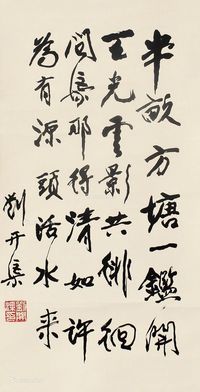 半畝方塘一鑑開
天光雲影共徘徊
問渠那得清如許
為有源頭活水来
劉开渠